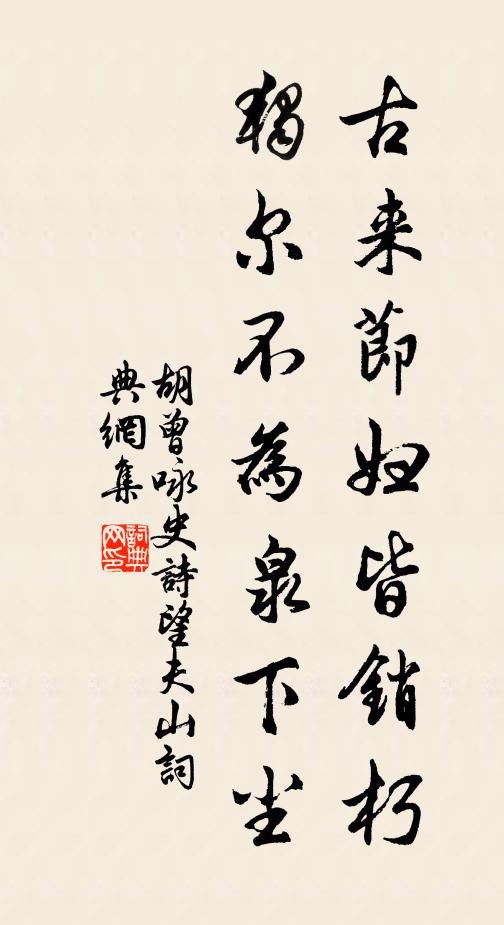 古来節妇皆銷朽
獨尔不為泉下尘
胡曾咏史詩望夫山詞
典網集
詞典网印